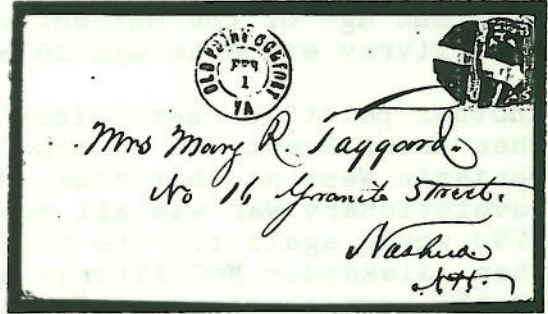 OLD POINT COMFORT
FEB
1
VA
Mrs Mary R. Taggard.
No 16 Granite Street.
Nashua
N.H.